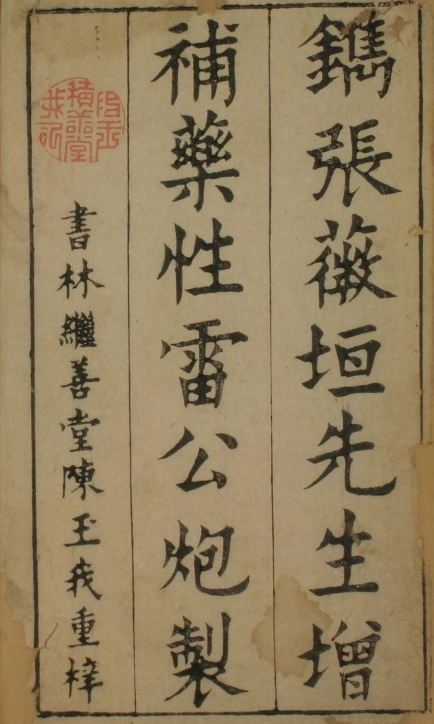 鐫張薇垣先生增
補藥性雷公炮製
書林繼善堂陳玉我重梓